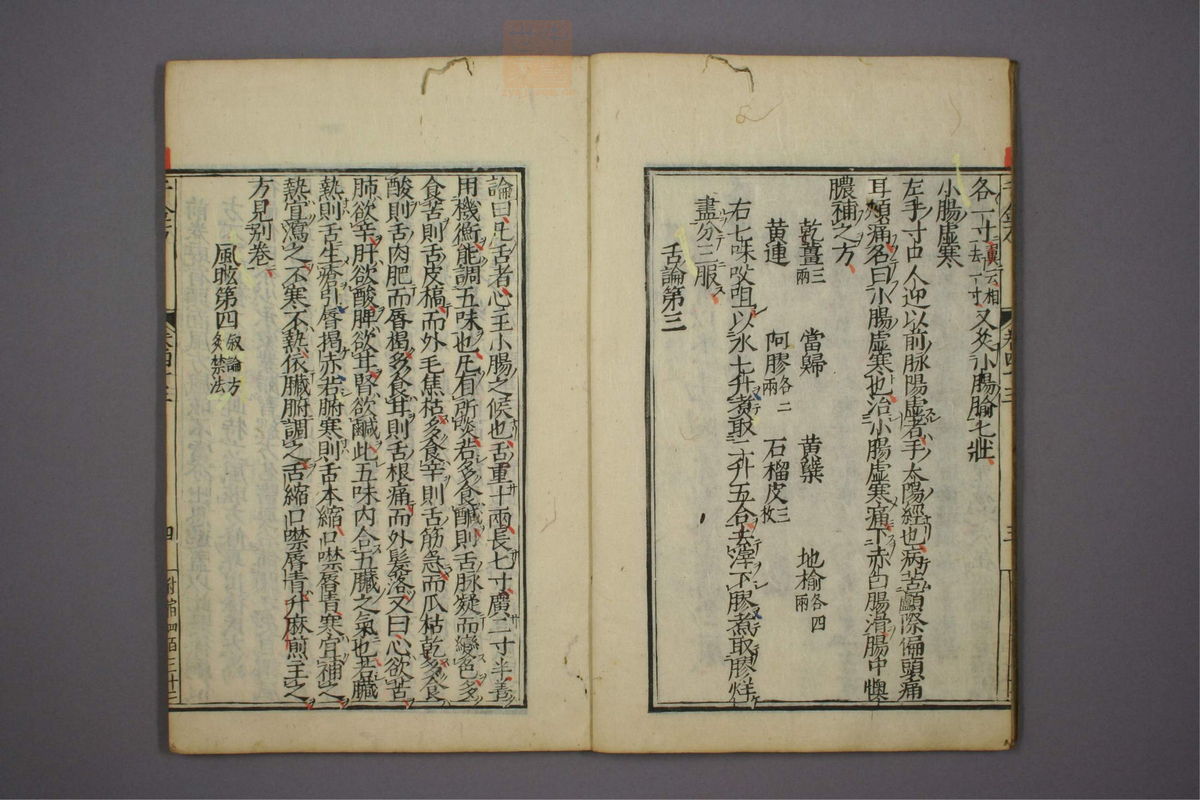 各一寸翼云相去一寸又灸小腸腧七壯
小腸虛寒
左手寸口人迎以前脉陽虛者手太陽經也病苦顱際偏頭痛
耳頰痛名曰小腸虛寒也治小腸虛寒痛下赤白腸滑腸中懊
膿補之方
乾薑三兩 當歸 黃蘗 地榆各四兩
黃連 阿膠各二兩 石榴皮三枚
右七味㕮咀以水七升煮取二升五合去滓下膠煮取膠烊
盡分三服
舌論第三
論曰凡舌者心主小腸之候也舌重十兩長七寸廣二寸半善
用機衡能調五味也凡有所啖若多食鹹則舌脉凝而變色多
食苦則舌皮槁而外毛焦枯多食辛則舌筋急而爪枯乾多食
酸則舌肉肥而唇揭多食甘則舌根痛而外髮落又曰心欲苦
肺欲辛肝欲酸脾欲甘腎欲鹹此五味內合五臟之氣也若臟
熱則舌生瘡引唇揭赤若腑寒則舌本縮口噤唇青寒宜補之
熱宜瀉之不寒不熱依臟腑調之舌縮口噤唇青升麻煎主之
方見別卷
風眩第四敘論方灸禁法
四